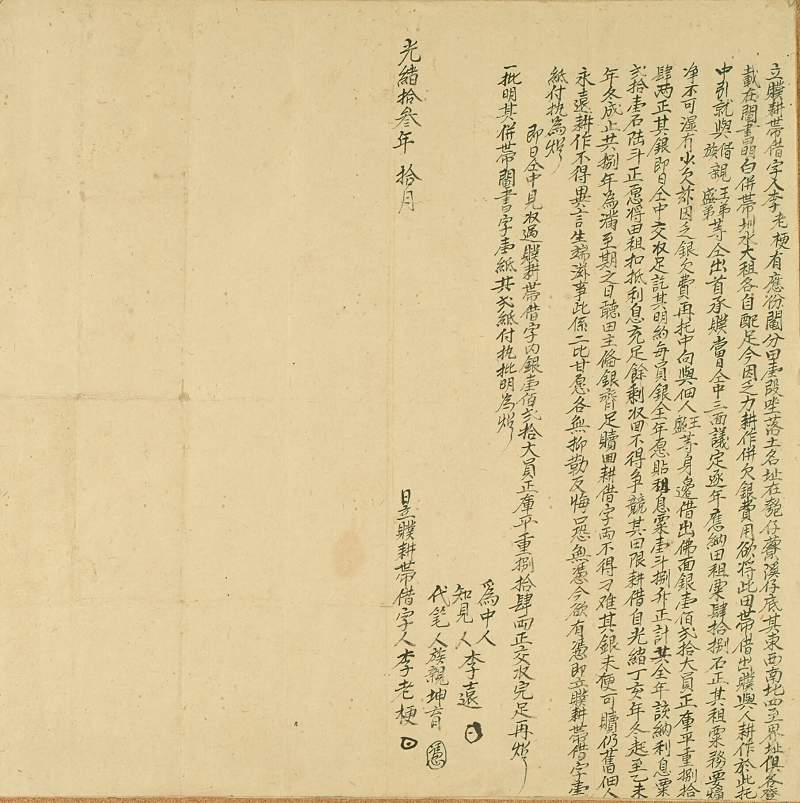 立贌耕帶借字人李老梗有應份鬮分田壹段坐落土名址在貓仔藔溪仔底其東西南北四至界址俱各登
載在鬮書明白併帶圳水大租各自配足今因乏力耕作併欠銀費用欲將此田帶借出贌與人耕作於此托
中引就與族親借王弟盛弟等仝出首承贌當日仝中三面議定逐年應納田租粟肆拾捌石正其租粟務要
淨不可濕冇少欠茲因乏銀欠費再托中向與佃人王盛等身邊借出佛面銀壹佰弍拾大員正庫平重捌拾
肆两正其銀即日仝中交收足訖其明約每員銀全年愿貼租息粟壹斗捌升正計共全年該納利息粟
弍拾壹石陆斗正愿將田租扣抵利息充足餘剩收回不得争競其田限耕借自光緒丁亥年冬起至乙未
年冬成止共捌年為滿至期之日聽田主俻銀齊足贖回耕借字两不得刁难其銀未便可贖仍舊佃人
永遠耕作不得異言生端滋事此係二比甘愿各無抑勒反悔口恐無憑今欲有憑即立贌耕帶借字壹
紙付执為炤
即日仝中見收過贌耕帶借字內銀壹佰弍拾大員正庫平重捌拾肆两正交收完足再炤
一批明其併帶鬮書字壹紙共弍紙付执批明為炤
為中人
知見人李遠
代笔人族親坤育
光緒拾叁年 拾月 日立贌耕帶借字人李老梗